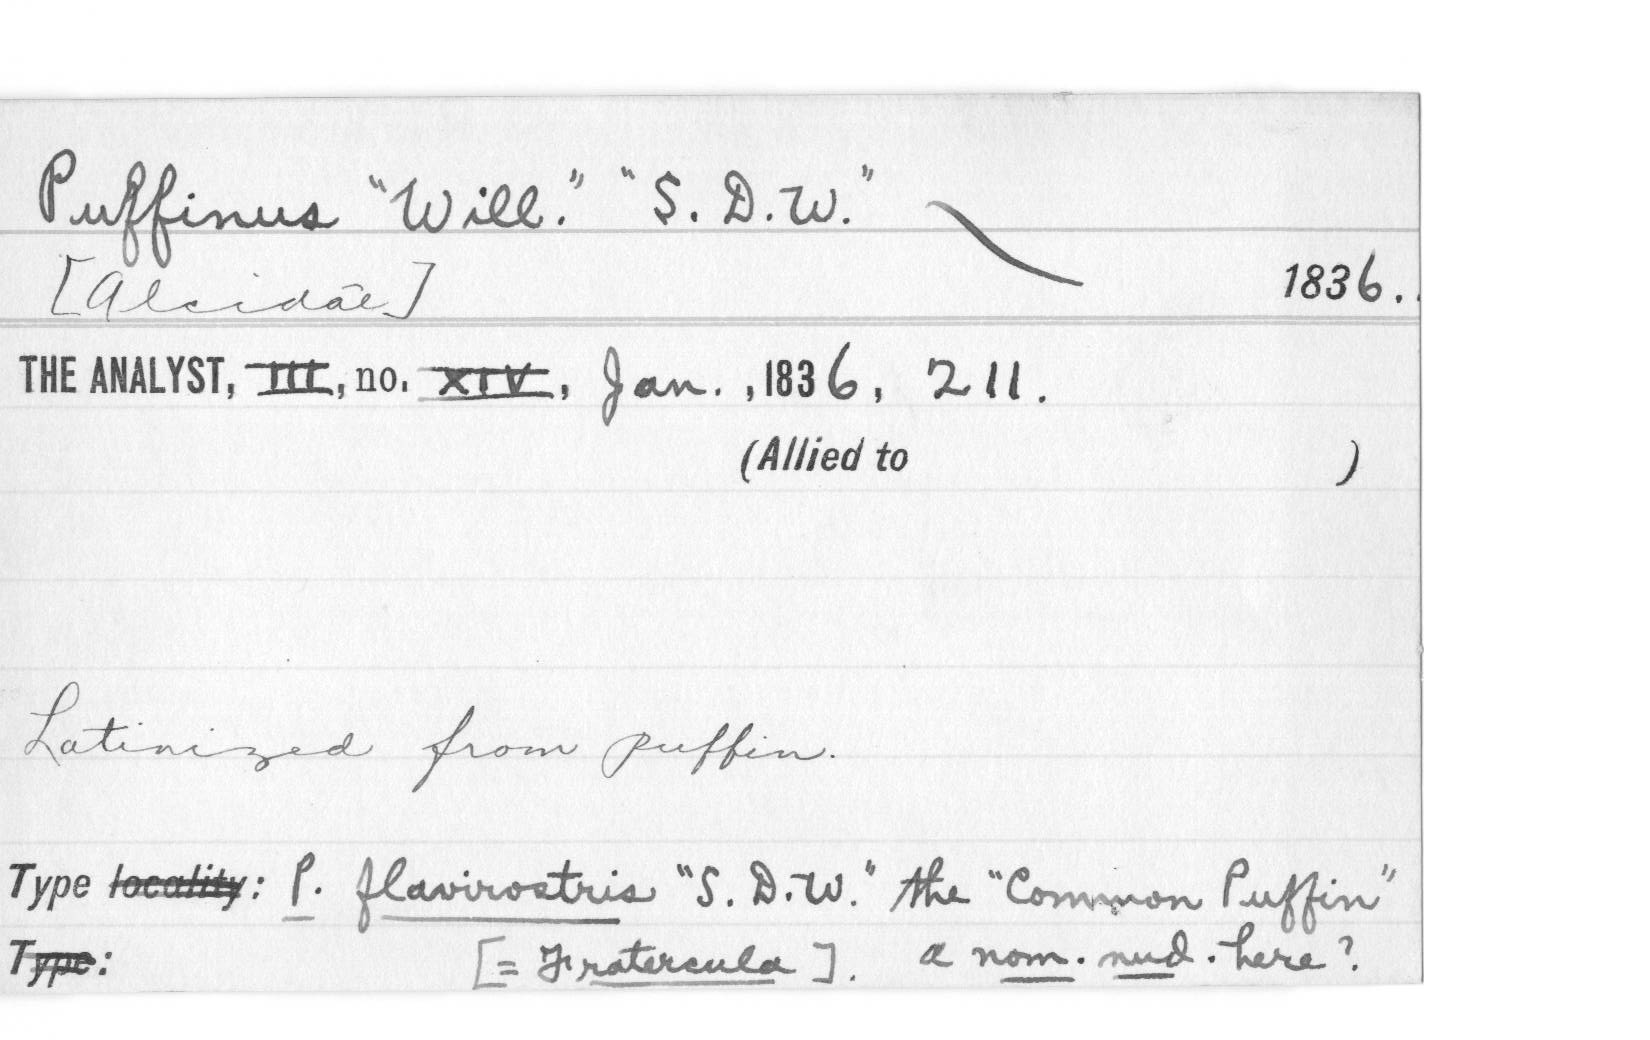 Puffinus "Will." "S. D. W."
[Alcidae] 1836.
THE ANALYST, III, no. XIV, Jan. , 1836, 211.
(Allied to )
Latinized from puffin.
Type locality: P. flavirostris "S. D. W." the "Common Puffin"
Type: [= Fratercula]. a nom. nud. here?